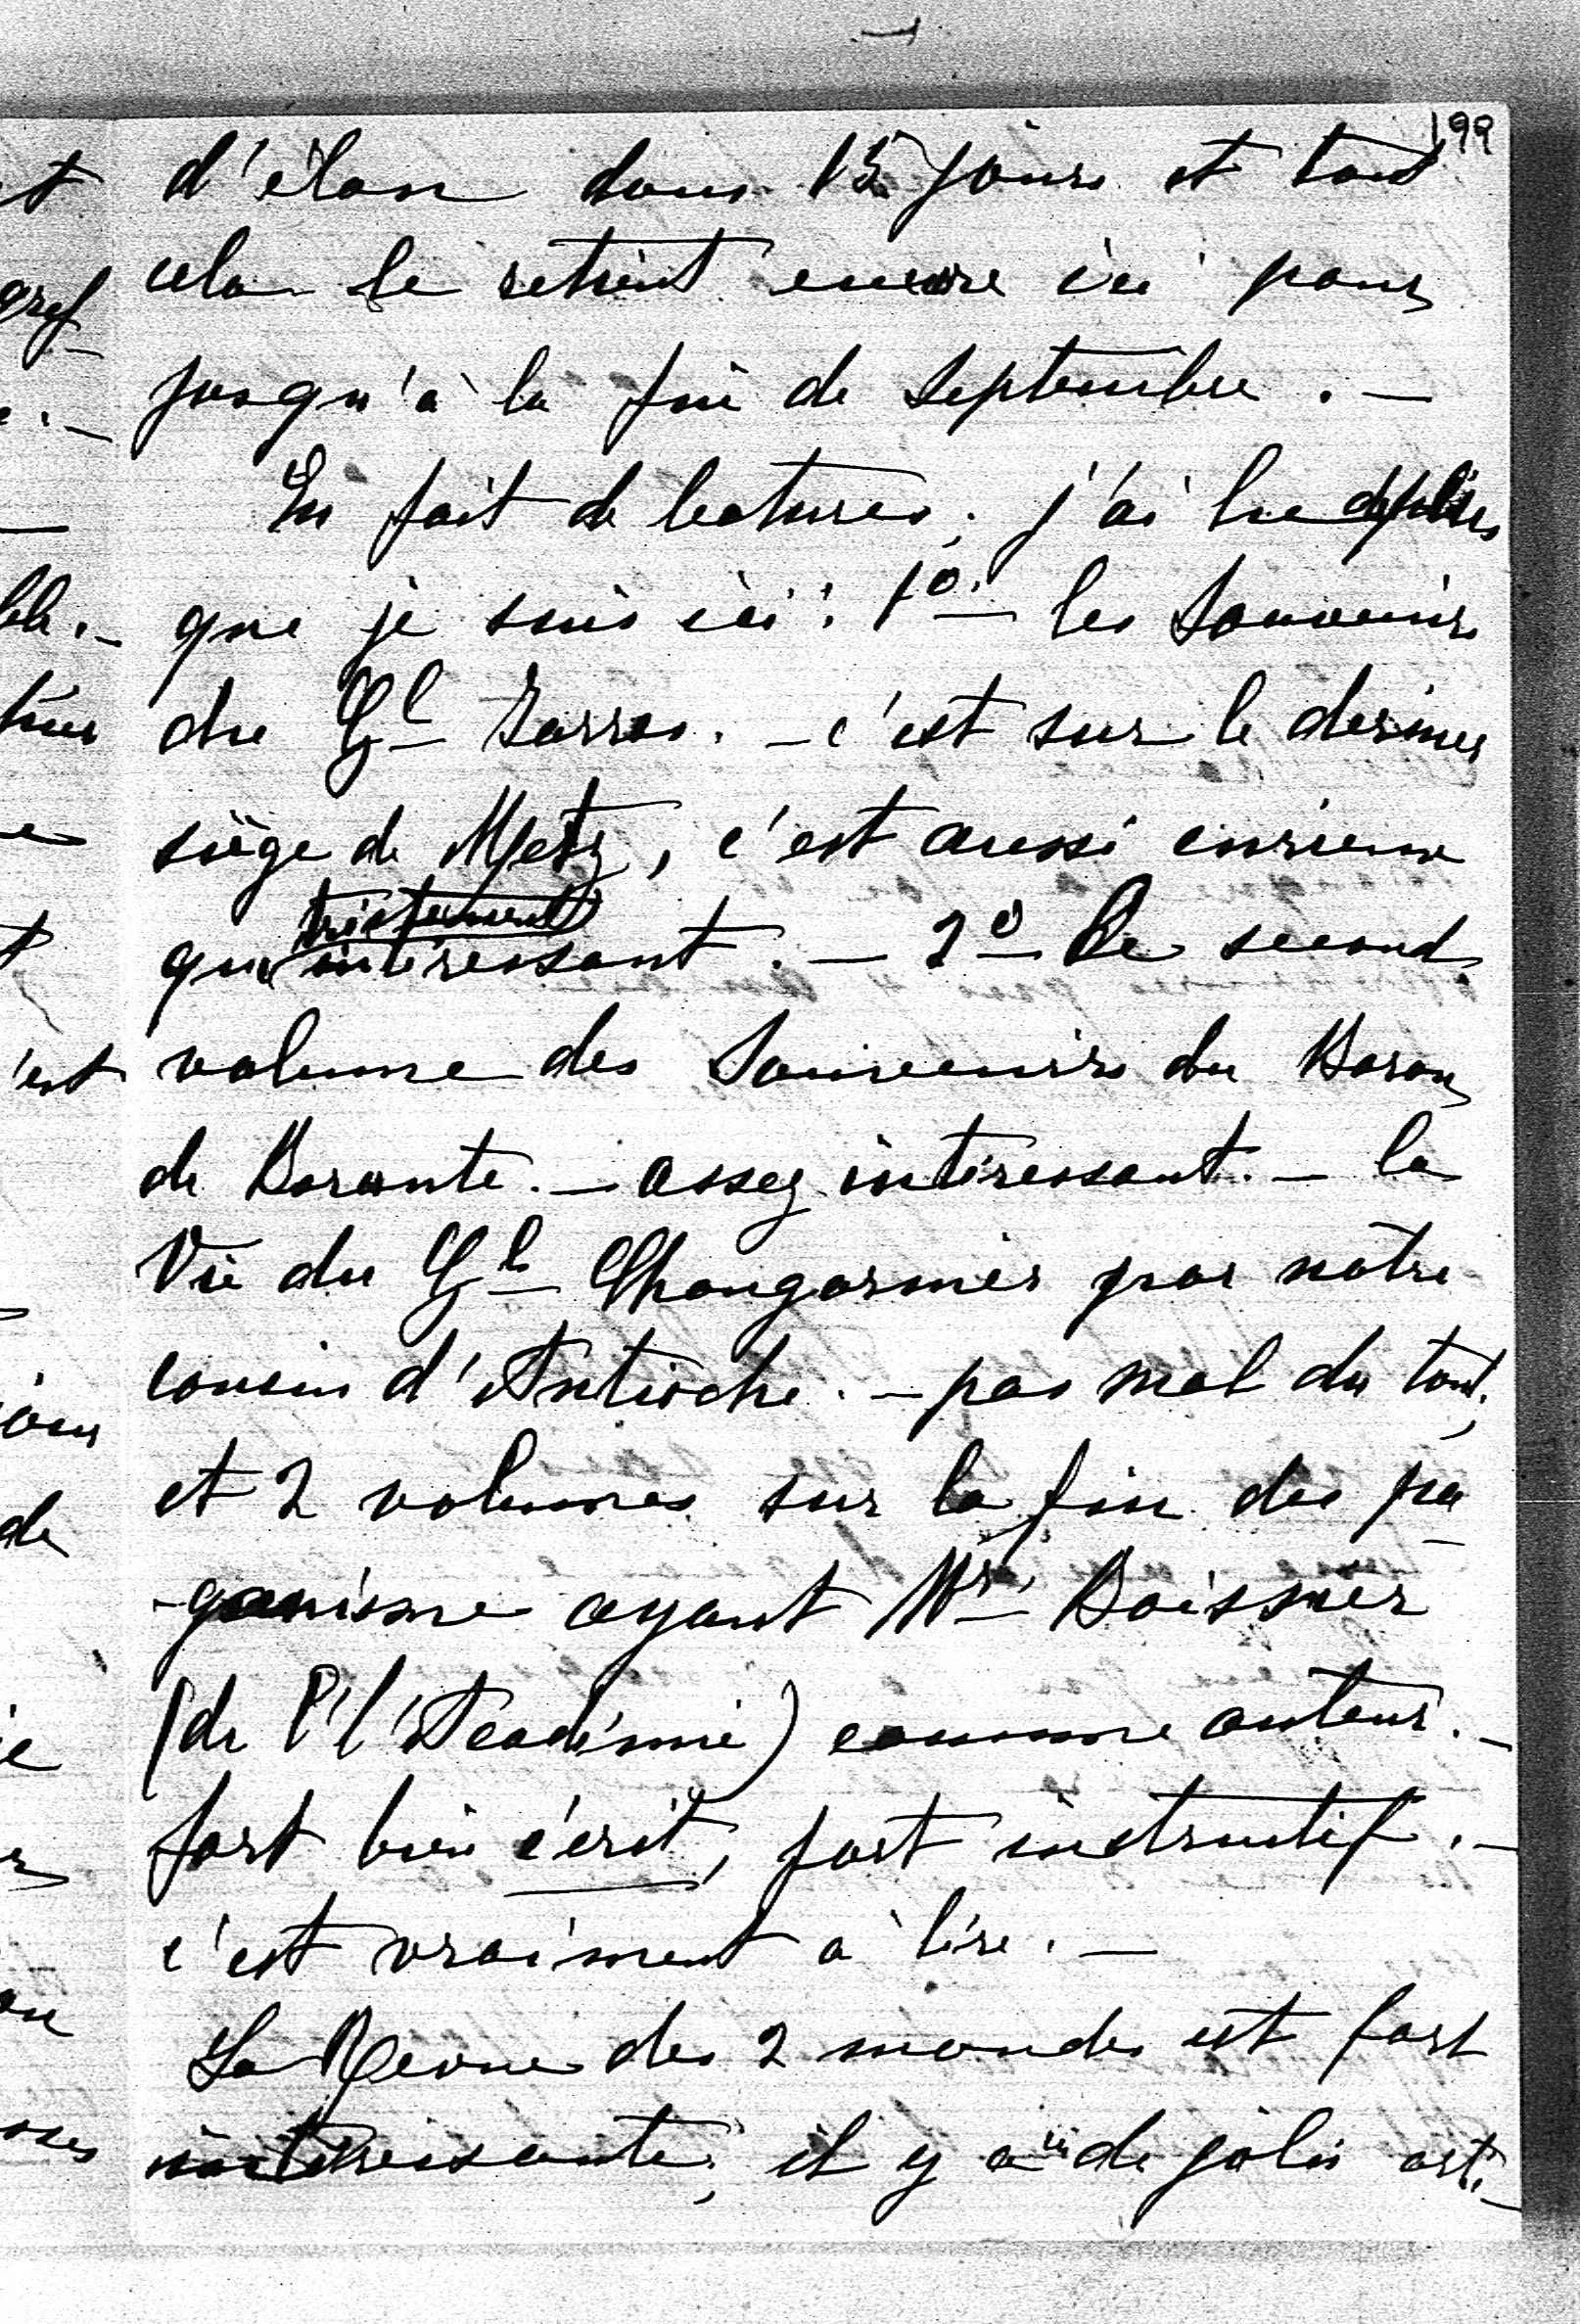 199
d'élan dans 15 jours et tout
cela le retient encore ici pour
jusqu'à la fin de Septembre. —
En fait de lectures, j'ai lu depuis
que je suis ici : 1º — les Souvenirs
du Gl Jarras. — c'est sur le dernier
siège de Metz, c'est aussi curieux
que tristement intéressant. — 2º — Le second
volume des Souvenirs du Baron
de Barante. — assez intéressant. — la
Vie du Gl Changarnier par notre
cousin d'Antioche. — pas mal du tout,
et 2 volumes sur la fin du pa-
-ganisme ayant Mr Boissier
(de l'l'Académie) comme auteur. —
fort bien écrit, fort instructif. —
c'est vraiment à lire. —
La Revue des 2 mondes est fort
intéressante, il y a de jolis arti-